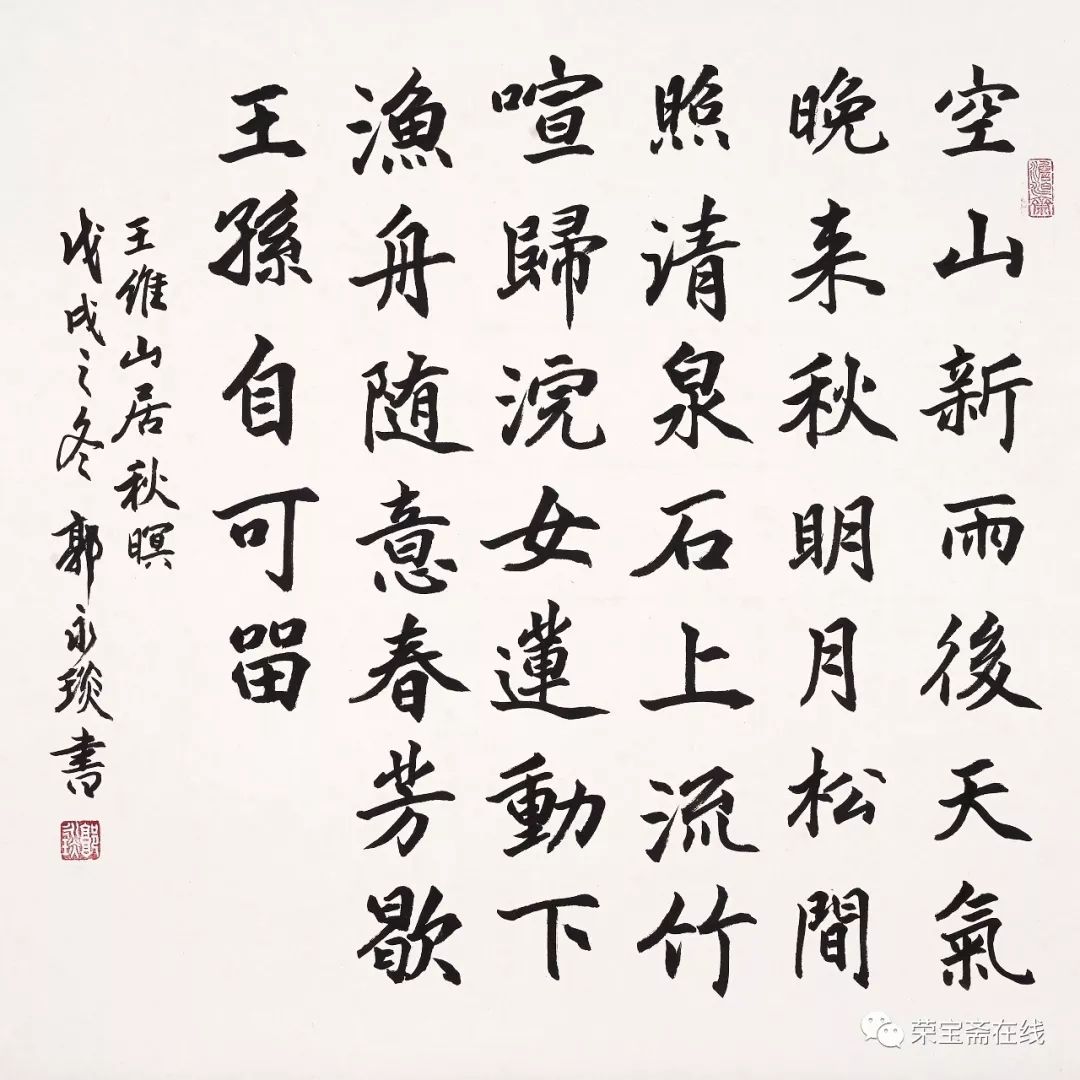 空山新雨後天氣
晚来秋明月松間
照清泉石上流竹
喧歸浣女蓮動下
漁舟随意春芳歇
王孫自可留
王維山居秋暝
戊戌之冬郭永琰書
荣宝斋在线